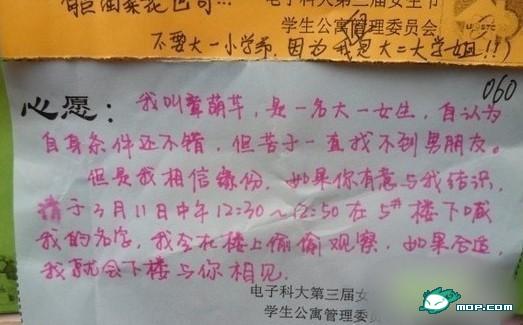 电子科大第三届女生节
学生公寓管理委员会
不要大一小学弟,因为我是大二大学姐!!)
060
心愿:我叫章萌芊,是一名大一女生,自认为
自身条件还不错,但苦于一直找不到男朋友。
但是我相信缘份,如果你有意与我结识,
请于3月11日中午12:30~12:50在5#楼下喊
我的名字,我会在楼上偷偷观察,如果合适,
我就会下楼与你相见.
电子科大第三届女
学生公寓管理委
猫扑
MOP.COM